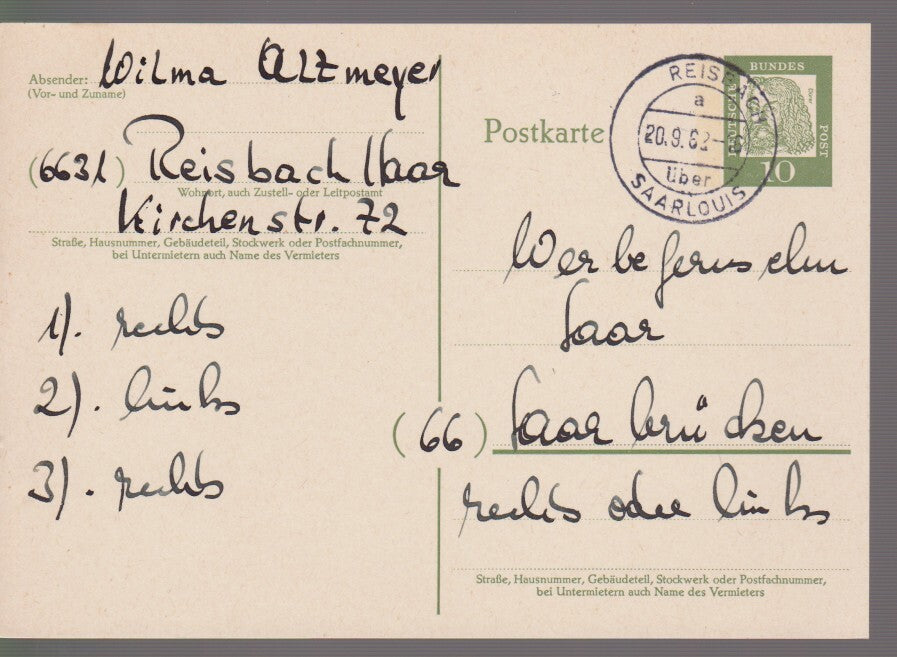 Absender: Wilma Altmeyer
(Vor- und Zuname)
(6631) Reisbach Saar
Wohnort, auch Zustell- oder Leitpostamt
Kirchenstr. 72
Straße, Hausnummer, Gebäudeteil, Stockwerk oder Postfachnummer,
bei Untermietern auch Name des Vermieters
1). rechts
2). links
3). rechts
Postkarte
REISBACH
a
20.9.62
über
SAARLOUIS
DEUTSCHE
BUNDES
POST
Dürer
10
Werbefernsehn
Saar
(66) Saarbrücken
rechts oder links
Straße, Hausnummer, Gebäudeteil, Stockwerk oder Postfachnummer,
bei Untermietern auch Name des Vermieters